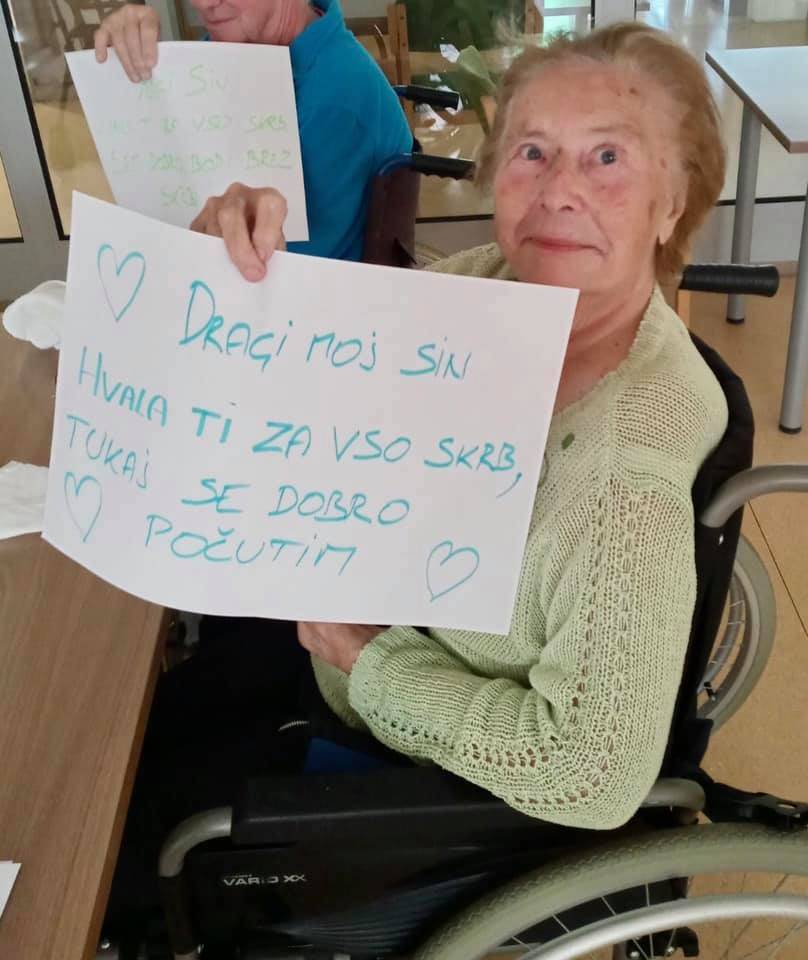 MOJ SIN
ZA VSO SKRB,
BREZ
SKRBI
DRAGI MOJ SIN
HVALA TI ZA VSO SKRB,
TUKAJ SE DOBRO
POČUTIM
VARIO XX